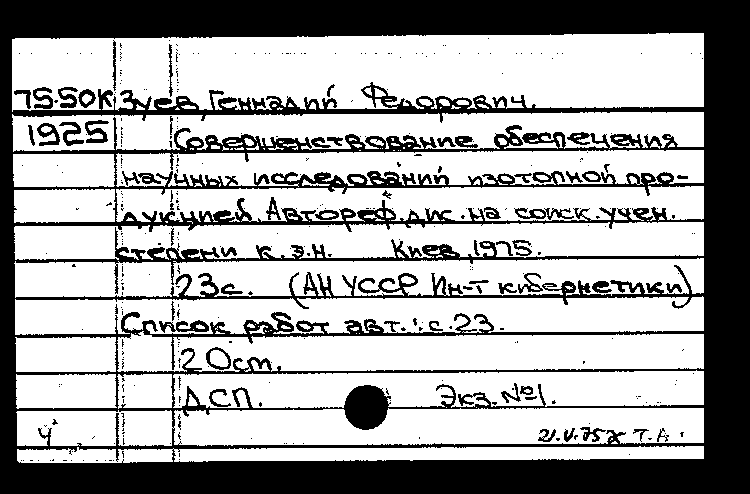 75-50К Зуев, Геннадий Федорович.
1925 Совершенствование обеспечения
научных исследований изотопной про-
дукцией. Автореф. дис. на соиск. учен.
степени к. э. н. Киев, 1975.
23с. (АН УССР. Ин-т кибернетики)
Список работ авт.: с. 23.
20ст.
ДСП. Экз. №1.
4 21.V.75 Т.А.